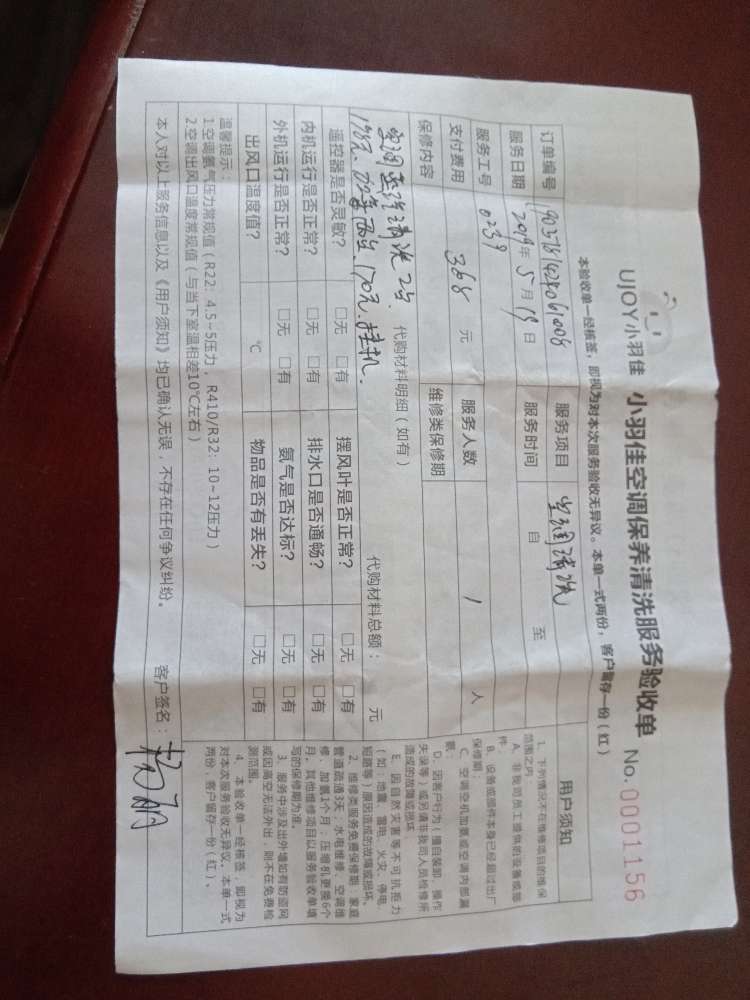 UJOY小羽佳 小羽佳空调保养清洗服务验收单 No.0001156
本验收单一经核签，即视为对本次服务验收无异议。本单一式两份，客户留存一份（红）
订单编号 服务项目 空调清洗
服务日期 2019年5月19日 服务时间 自 至
服务工号 0239 服务人数 1 人
支付费用 368 元 维修类保修期
保修内容
代购材料明细（如有） 代购材料总额： 元
空调 清洗2台
170元.挂机.
遥控器是否灵敏？ □无 □有 摆风叶是否正常？ □无 □有
内机运行是否正常？ □无 □有 排水口是否通畅？ □无 □有
外机运行是否正常？ □无 □有 氨气是否达标？ □无 □有
出风口温度值？ ℃ 物品是否有丢失？ □无 □有
温馨提示：
1.空调氨气压力常规值（R22：4.5~5压力，R410/R32：10~12压力）
2.空调出风口温度常规值（与当下室温相差10℃左右）
本人对以上服务信息以及《用户须知》均已确认无误，不存在任何争议纠纷。 客户签名：
用户须知
1、下列情况不在维修项目的维保
范围之内：
A、非我司员工提供的设备或部
件；
B、设备或部件本身已经超过出厂
保修期；
C、空调空机加氨或空调内部漏
氨；
D、因客户行为（擅自装卸、操作
失误等）或另请非我司人员检修所
造成的故障或损坏
E、因自然灾害等不可抗拒力
（如：地震、雷电、火灾、停电、
短路等）原因造成的故障或损坏。
2、维修类服务免费保修期：家庭
管道疏通3天；水电维修、空调维
修、加氨1个月；压缩机更换6个
月，其他维修项目以服务验收单填
写的保修期为准。
3、服务中涉及出外墙如有防盗网
或因高空无法外出，则不在免费检
测范围。
4、本验收单一经核签，即视为
对本次服务验收无异议。本单一式
两份，客户留存一份（红）。